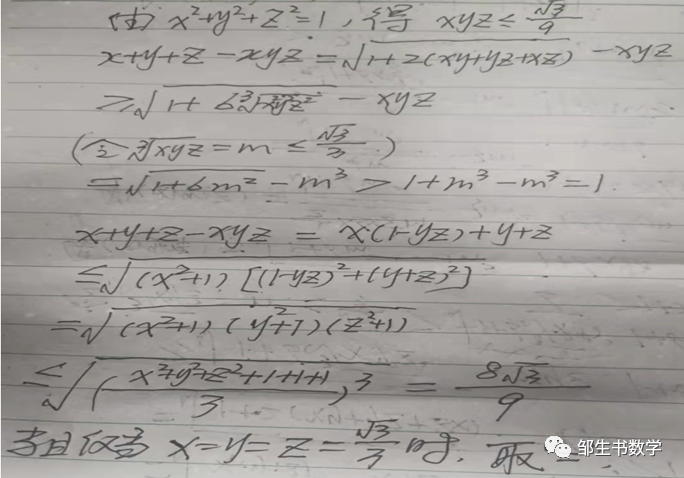 由 x²+y²+z²=1, 得 xyz≤√3/9
x+y+z-xyz=√(1+2(xy+yz+xz)) -xyz
≥√(1+6∛(x²y²z²)) -xyz
(令∛(xyz)=m≤√3/3)
=√(1+6m²) -m³>1+m³-m³=1.
x+y+z-xyz = x(1-yz)+y+z
≤√((x²+1)[(1-yz)²+(y+z)²])
=√((x²+1)(y²+1)(z²+1))
≤√((x²+y²+z²+1+1+1)/3)³ = 8√3/9
当且仅当 x=y=z=√3/3 时. 取"=".
邹生书数学